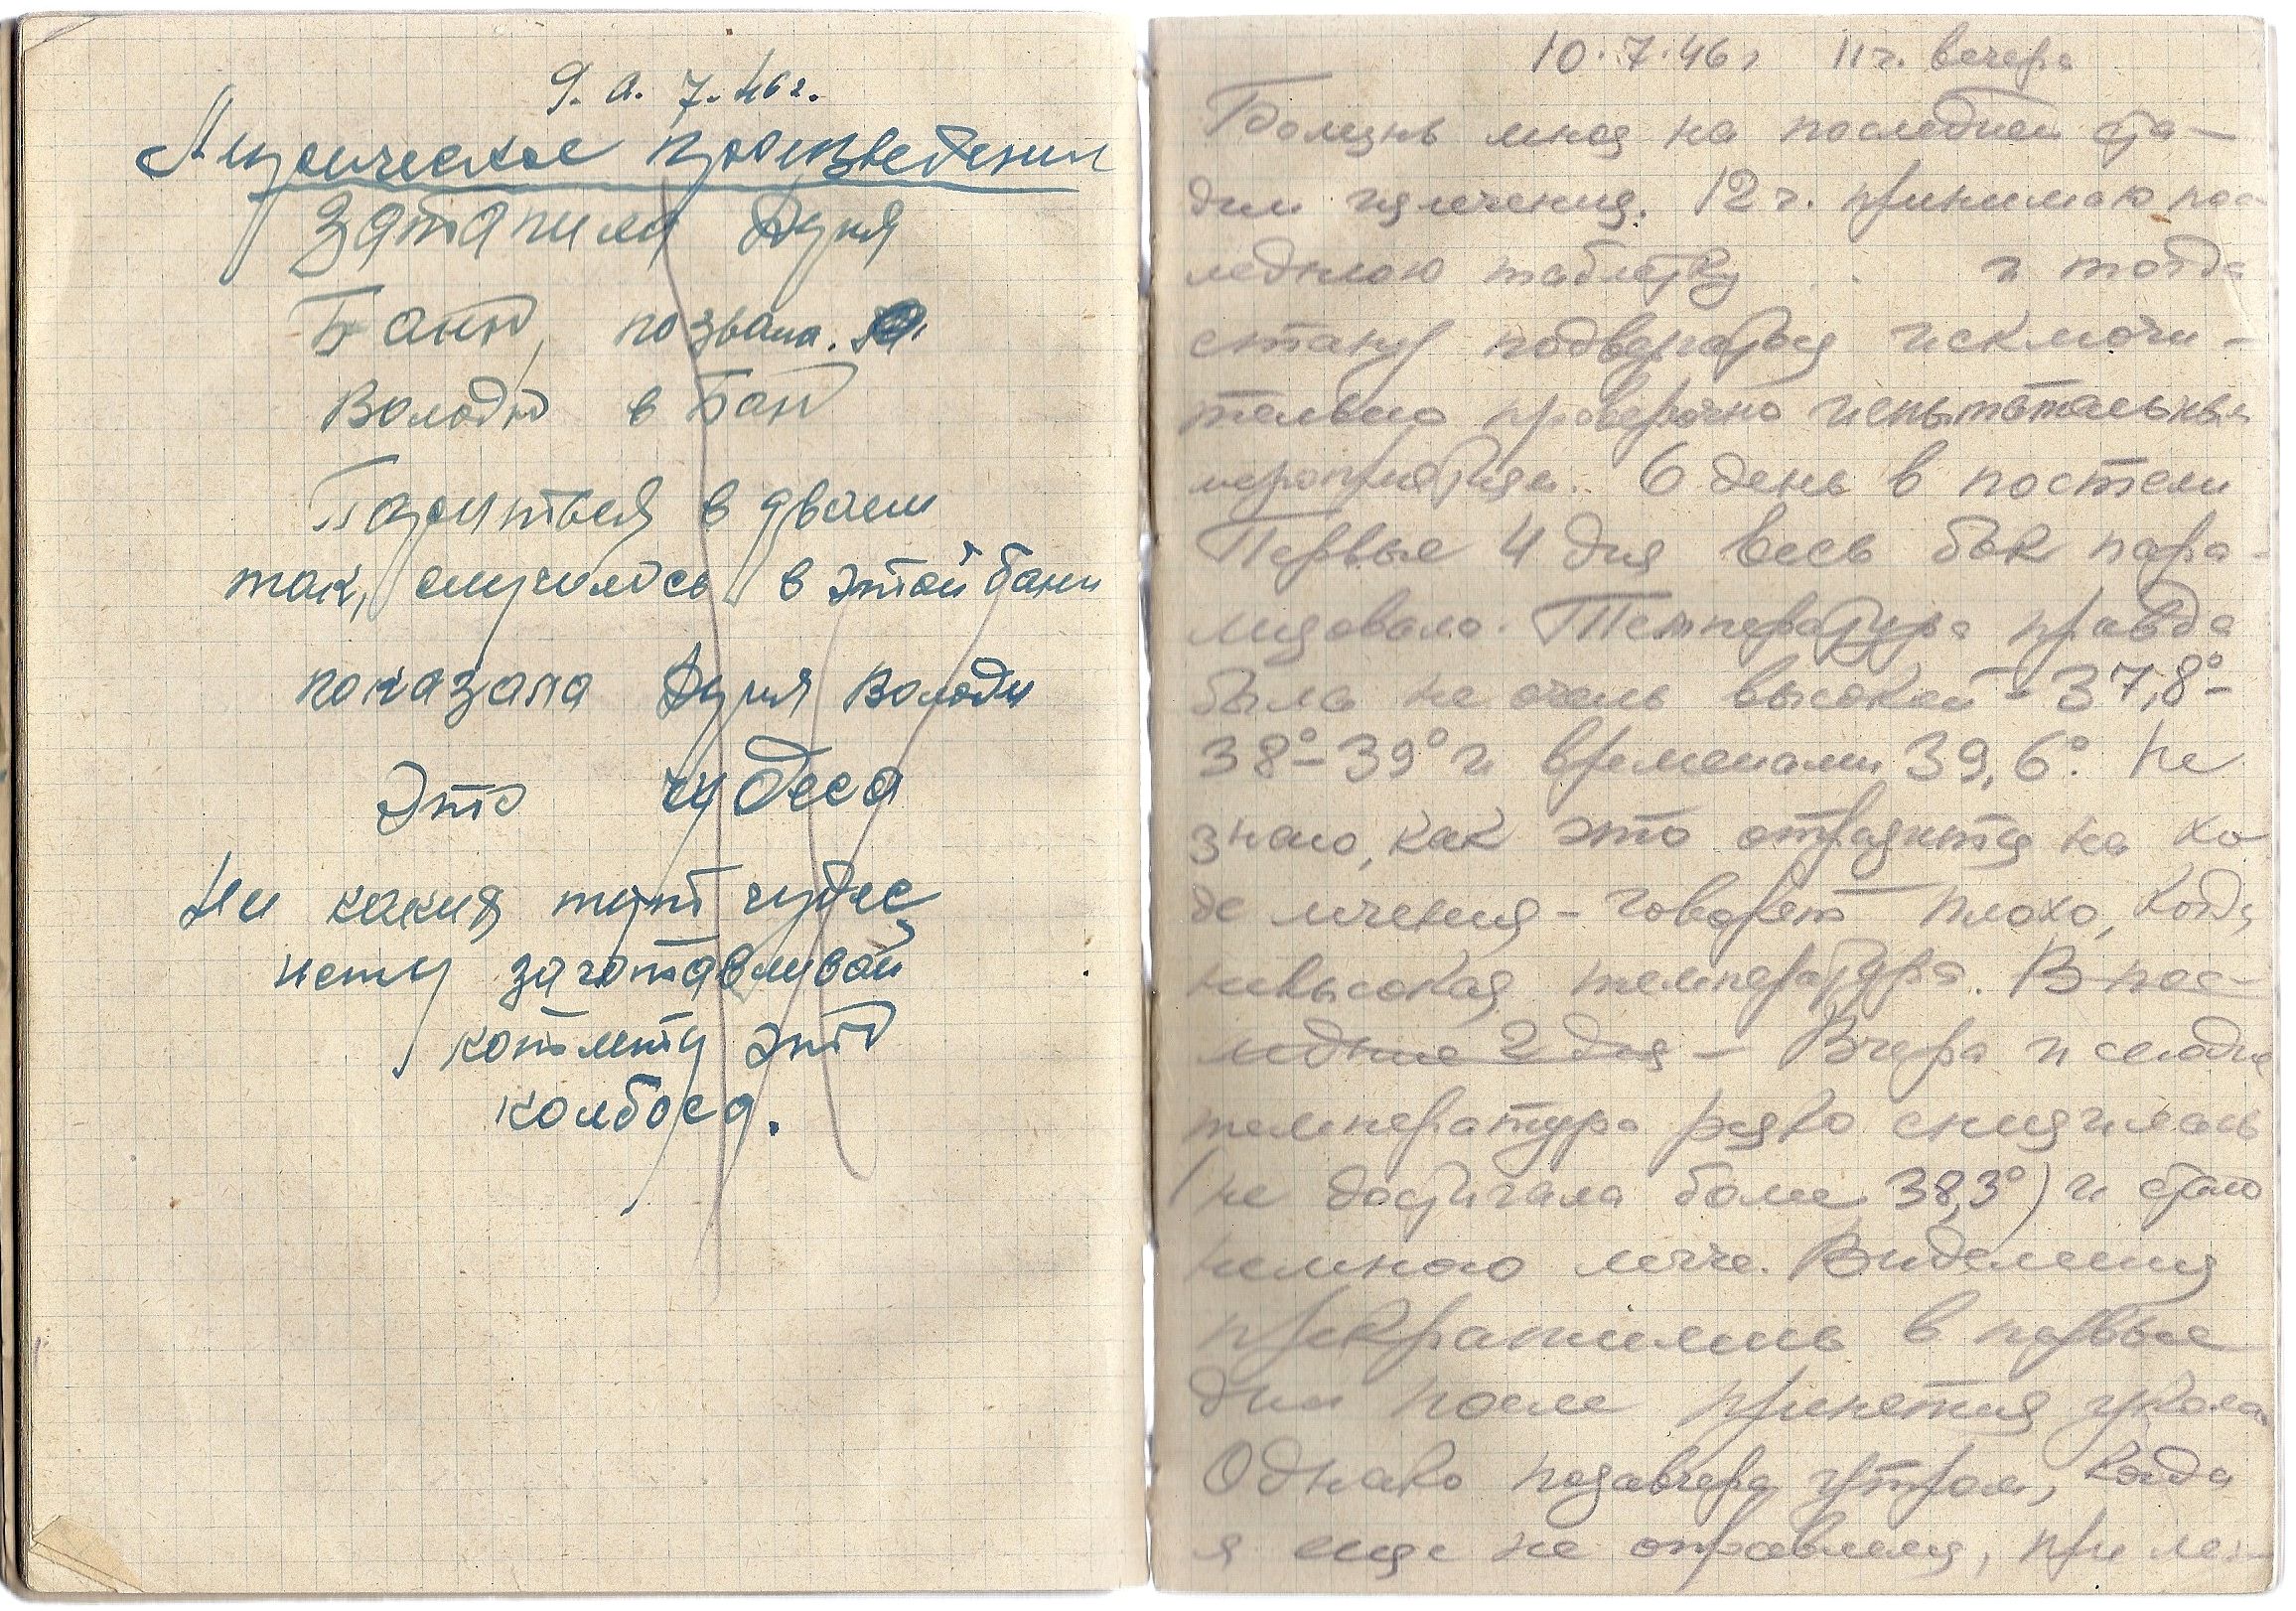 9. а. 7. 46 г.
Лирическое произведения
Затапила Дуня
Баню, позвала.
Володю в Баню
Парииться в двоем
так, случилось в этой бани
показала Дуня Володи
Это чудеса
Ни каких тут чудес
нету заготавливай
котлету это
колбоса.
10.7.46г 11 ч. вечера
Болезнь моя на последней ста-
дии излечения. 12 ч. принимаю пос
леднюю таблетку . . и тогда
стану подвергаться исключи-
тельно проверочно испытательным
мероприятиям. 6 день в постели
Первые 4 дня весь бок пара-
лизовало. Температура правда
была не очень высокой - 37,8°-
38°-39° и временами 39,6°. Не
знаю, как это отразится на хо
де лечения - говорят плохо, когда
невысокая температура. В пос-
ледние 2 дня - Вчера и сегодня
температура резко снизилась
(не достигала более 38,3°) и стало
немного легче. Выделения
прекратились в первые
дни после принятия укола
Однако позавчера утром, когда
я еще не оправлялся, при